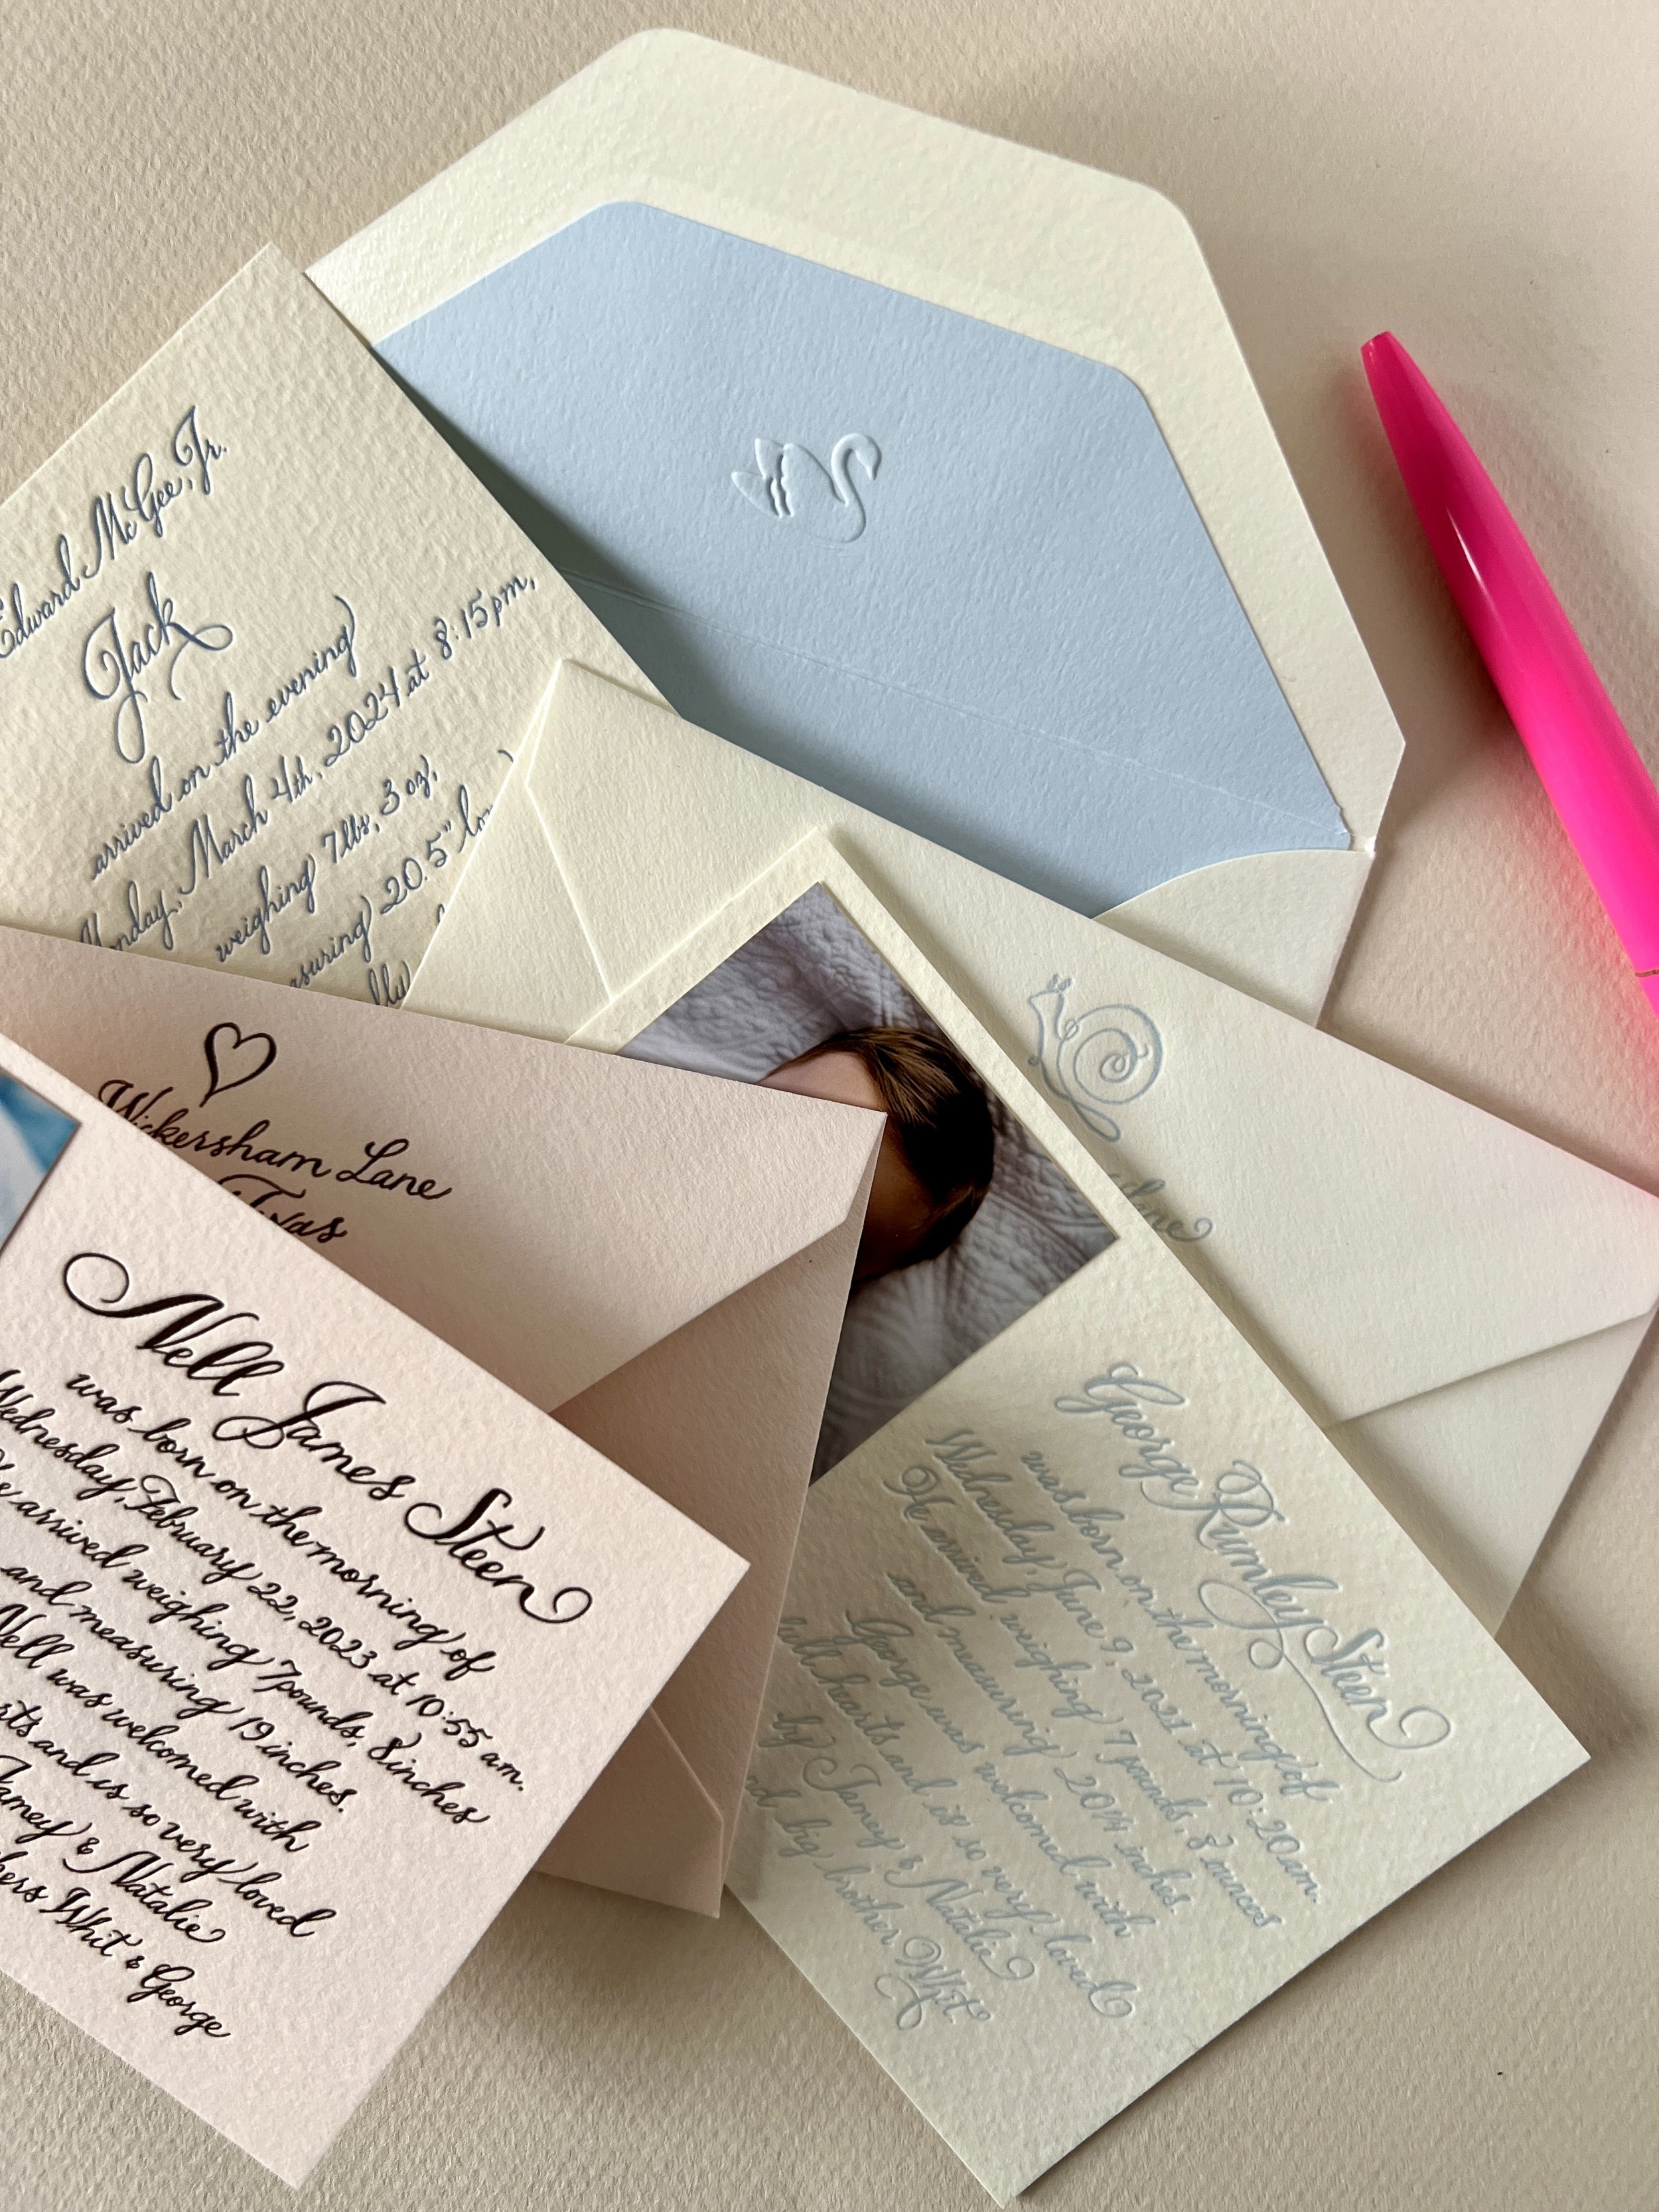 Edward McGee, Jr.
Jack
arrived on the evening
Monday, March 4th, 2024 at 8:15pm,
weighing 7lbs, 3 oz,
measuring 20.5"
Wickersham Lane
Texas
Nell James Steen
was born on the morning of
Wednesday, February 22, 2023 at 10:55 am.
arrived weighing 7 pounds, 8 inches
and measuring 19 inches.
Nell was welcomed with
and is so very loved
Jamey & Natalie
Whit & George
Lane
George Rumley Steen
was born on the morning of
Wednesday, June 9, 2021 at 10:20 am.
He arrived weighing 7 pounds, 8 ounces
and measuring 20 1/4 inches.
George was welcomed with
full hearts and is so very loved
by Jamey & Natalie
big brother Whit